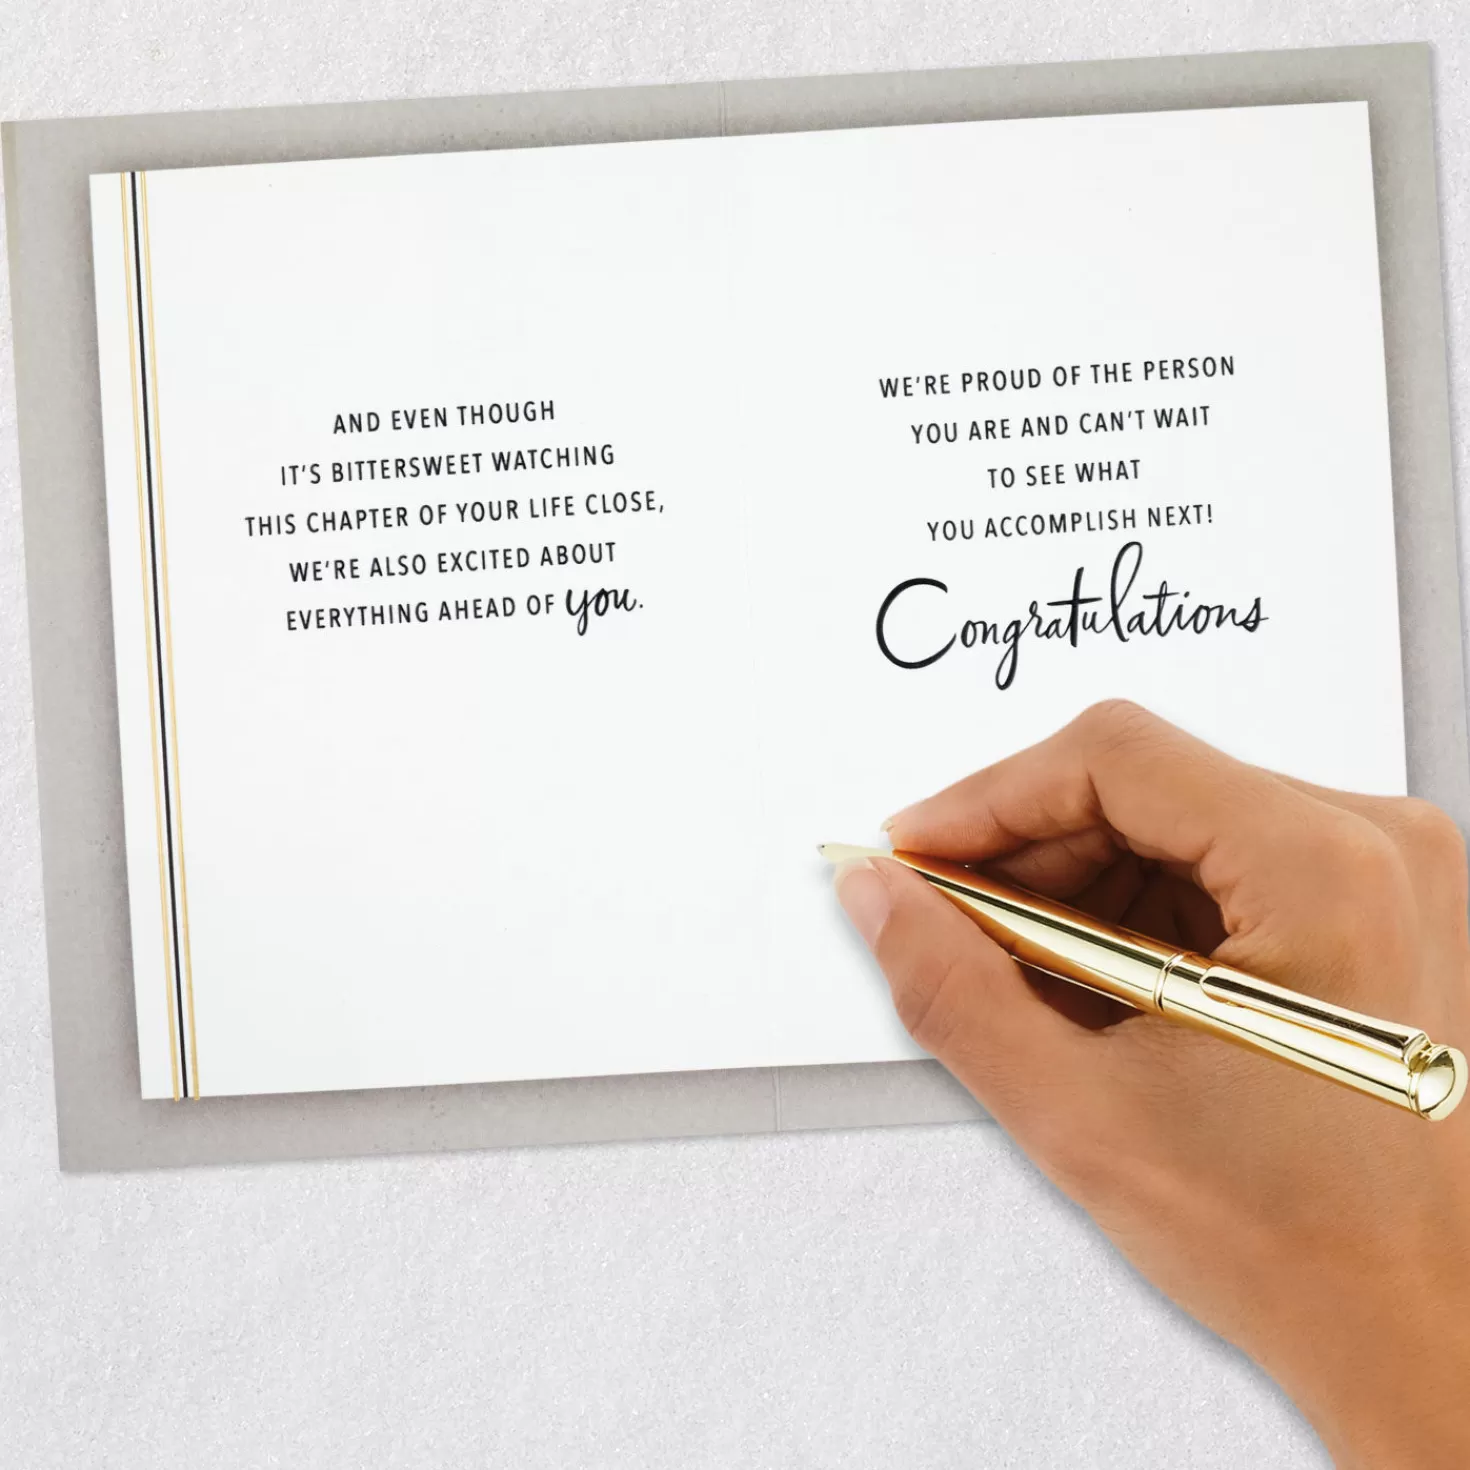 AND EVEN THOUGH
IT'S BITTERSWEET WATCHING
THIS CHAPTER OF YOUR LIFE CLOSE,
WE'RE ALSO EXCITED ABOUT
EVERYTHING AHEAD OF you.
WE'RE PROUD OF THE PERSON
YOU ARE AND CAN'T WAIT
TO SEE WHAT
YOU ACCOMPLISH NEXT!
Congratulations